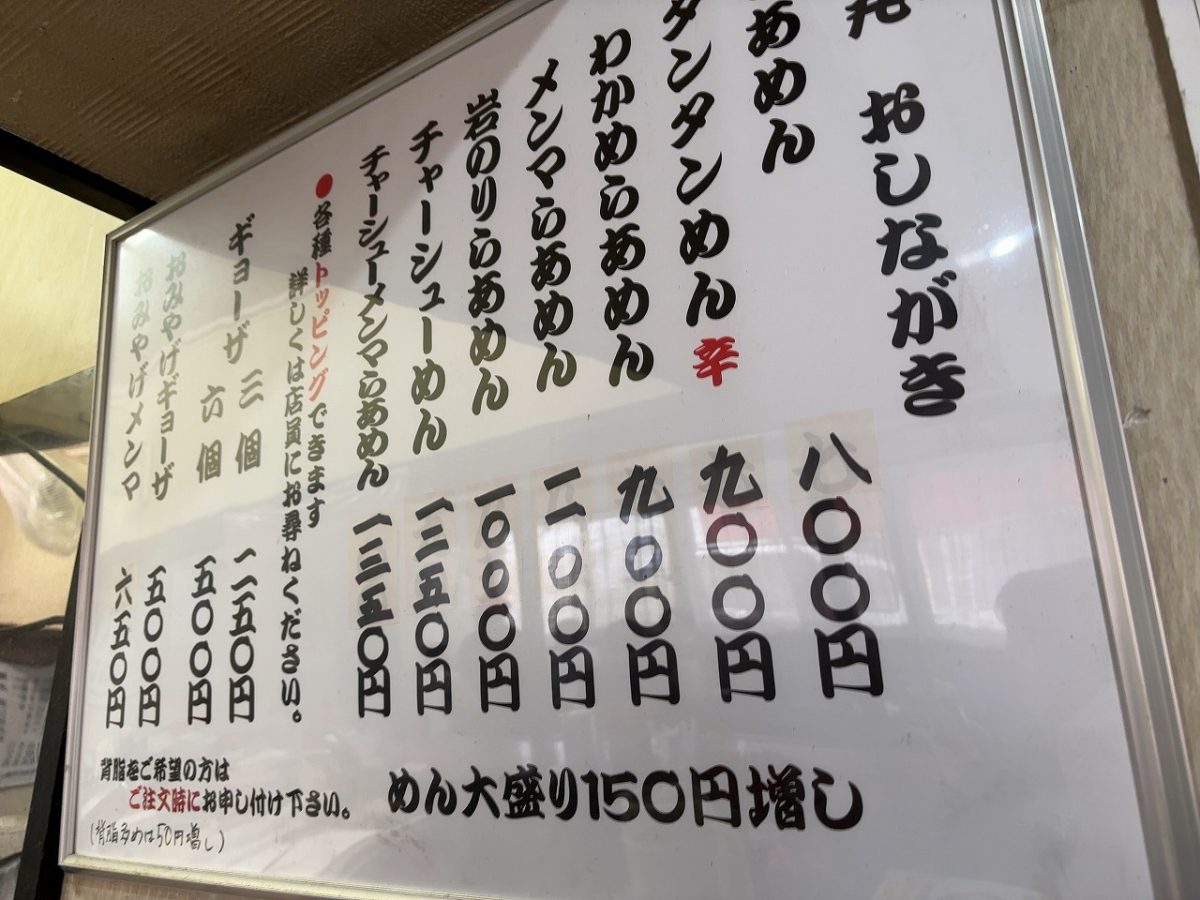 おしながき
あめん 八〇〇円
タンタンめん 辛 九〇〇円
わかめらあめん 九〇〇円
メンマらあめん 一一〇〇円
岩のりらあめん 一〇〇〇円
チャーシューめん 一二五〇円
チャーシューメンマらあめん 一三五〇円
●各種トッピングできます
詳しくは店員にお尋ねください。
ギョーザ 三個 二五〇円
六個 五〇〇円
おみやげギョーザ 五〇〇円
おみやげメンマ 六五〇円
めん大盛り150円増し
背脂をご希望の方は
ご注文時にお申し付け下さい。
(背脂多めは50円増し)